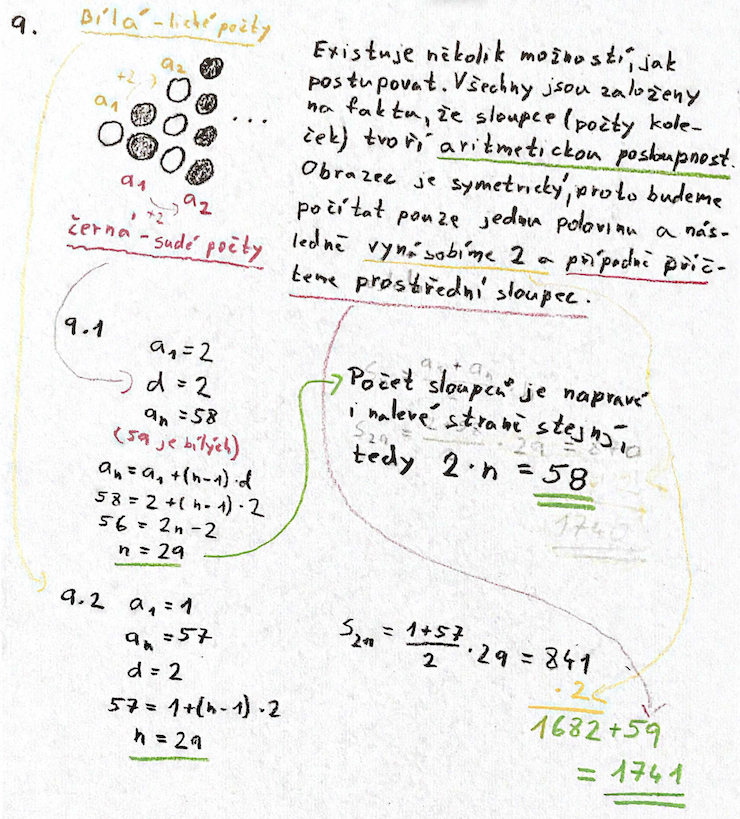 9.
Bílá - liché počty
+2
a₂
a₁
...
a₁
+2
a₂
černá - sudé počty
Existuje několik možností, jak
postupovat. Všechny jsou založeny
na faktu, že sloupce (počty kole-
ček) tvoří aritmetickou posloupnost.
Obrazec je symetrický, proto budeme
počítat pouze jednu polovinu a nás-
ledně vynásobíme 2 a případně přič-
teme prostřední sloupec.
9.1
a₁ = 2
d = 2
aₙ = 58
(59 je bílých)
aₙ = a₁ + (n-1) · d
58 = 2 + (n-1) · 2
56 = 2n - 2
n = 29
Počet sloupců je napravé
i nalevé straně stejný,
tedy 2 · n = 58
9.2 a₁ = 1
aₙ = 57
d = 2
57 = 1 + (n-1) · 2
n = 29
S₂ₙ = (1+57)/2 · 29 = 841
· 2
1682 + 59
= 1741